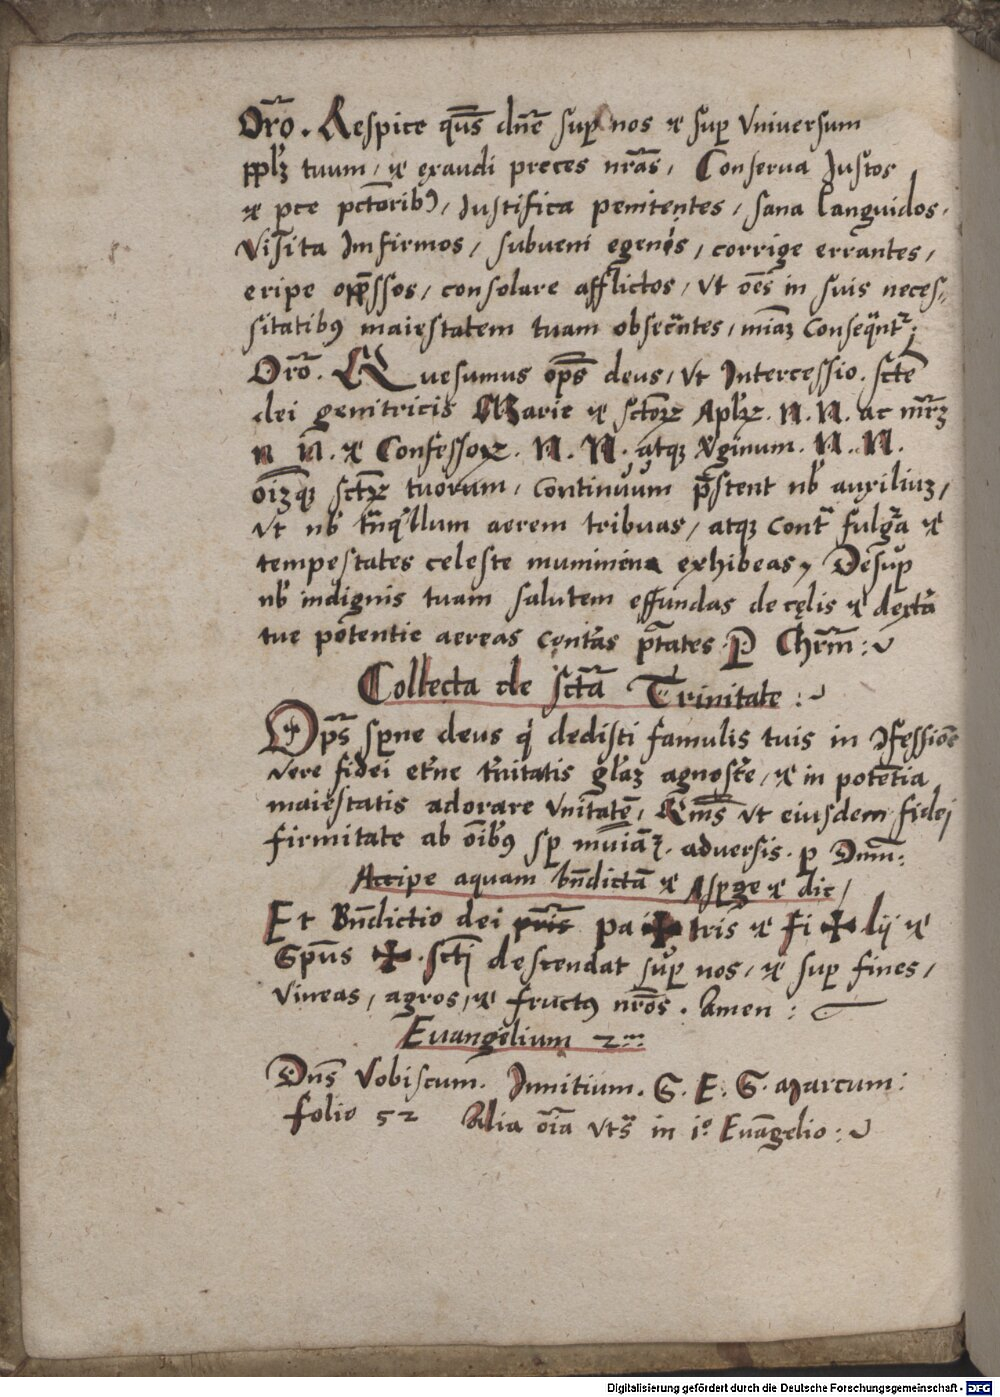 Oro͞. Respice qu͞s dn͞e sup nos & sup Vniuersum
pplꝫ tuum / & exaudi preces nr͞as / Conserua Iustos
& pce pct͞oribꝰ / Iustifica penitentes / sana languidos /
Visita Imfirmos / subueni egenis / corrige errantes /
eripe opp͞ssos / consolare afflictos / Vt oe͞s in suis neces⸗
sitatibꝰ maiestatem tuam obsecantes / mia͞ꝫ conseqntʳ :
Oro͞. Quesumus op͞s deus / Vt Intercessio. sct͞e
dei genitricis Marie & sctoꝝ Aplꝝ. N. N. ac mr͞ꝝ
N N. & Confessoꝝ. N. N. atqꝫ Vginum. N. N.
oi͞ꝫqꝫ sctꝝ tuorum / continuum p͞stent nb̄ auxiliuꝫ /
Vt nb̄ tnq̓llum aerem tribuas / atqꝫ cont̄ fulga &
tempestates celeste munimina exhibeas / Desup
nb̄ indignis tuam salutem effundas de cęlis & dextā
tue potentie aereas contas ptates. P Chr͞m :
Collecta de sct͞a Trinitate :
Op͞s spne deus q̓ dedisti famulis tuis in ꝯfessione͞
vere fidei etne tnitatis gla͞ꝫ agnosce / & in potent͞ia
maiestatis adorare Vnitate͞ / Qms͞ Vt eiusdem fidei
firmitate ab oi͞bꝰ sp muia͞ꝫ. aduersis. p Dnm͞ :
Accipe aquam bn͞dicta͞ & Asperge & dic /
Et Bn͞dictio dei pr͞is pa ✠ tris & Fi ✠ lij &
Sp͞us ✠. sct͞i descendat sup nos / & sup fines /
Vineas / agros / & fructꝰ nr͞os. Amen :
Euangelium 2
Dn͞s Vobiscum. Innitium. S. E. S. Marcum :
folio 52 Alia oi͞a Vts͞ in 1° Euangelio :
Digitalisierung gefördert durch die Deutsche Forschungsgemeinschaft - DFG